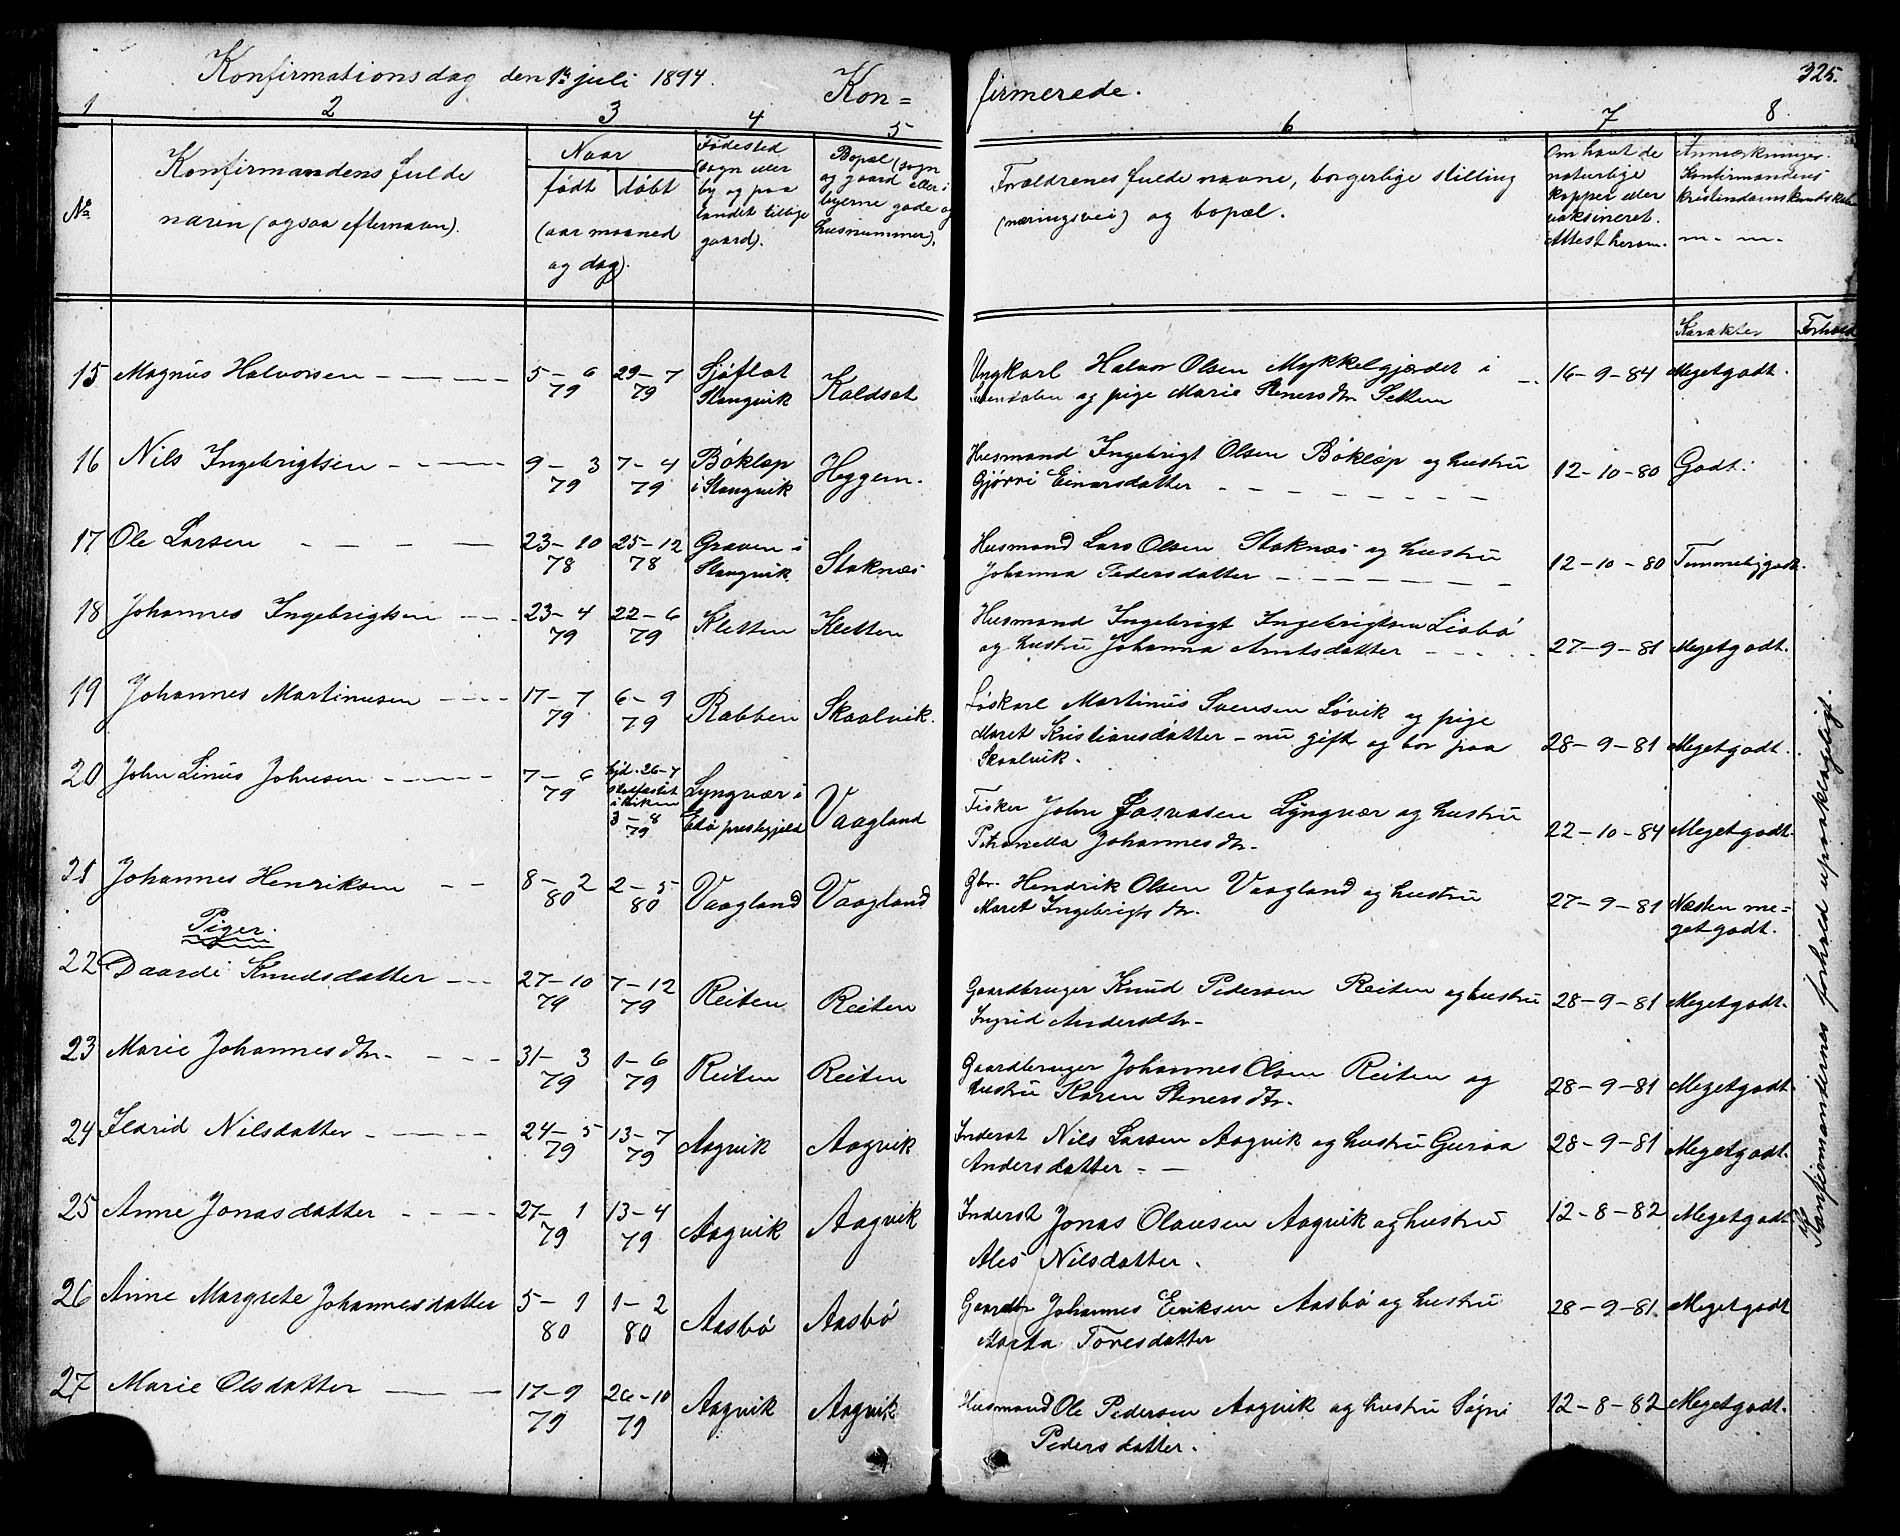 Konfirmationsdag den 1ste juli 1894.
Kon=
firmerede.
325.
1 2 3 4 5 6 7 8
No
Konfirmandens fulde
navn (ogsaa efternavn).
Naar
født døbt
(aar maaned
og dag).
Fødested
(sogn eller
by og paa
landet tillige
gaard).
Bopæl (sogn
og gaard eller i
byerne gade og
husnummer).
Forældrenes fulde navne, borgerlige stilling
(næringsvei) og bopæl.
Om havt de
naturlige
kopper eller
vaksineret.
Attest herom.
Anmærkninger.
Konfirmandens
kristendomskundskab
m. m.
Karakter Forhold
15 Magnus Halvorsen 5-6 79 29-7 79 Sjøflot Stangvik Koldset
Ungkarl Halvor Olsen Mykkelgjerdet i
og pige Marie Stenersdtr Settem
16-9-84 Megetgodt.
16 Nils Ingebrigtsen 9-3 79 7-4 79 Bøklep i Stangvik Heggem.
Husmand Ingebrigt Olsen Bøklep og hustru
Gjørri Einarsdatter
12-10-80 Godt.
17 Ole Larsen 23-10 78 25-12 78 Graven i Stangvik Stoknæs
Husmand Lars Olsen Stoknæs og hustru
Johanna Pedersdatter
12-10-80 Temmeliggodt.
18 Johannes Ingebrigtsen 23-4 79 22-6 79 Kletten Kletten
Husmand Ingebrigt Ingebrigtsen Liabø
og hustru Johanna Arntsdatter
27-9-81 Megetgodt.
19 Johannes Martinusen 17-7 79 6-9 79 Rabben Skaalvik.
Løskarl Martinus Svensen Løvik og pige
Maret Kristiansdatter - nu gift og bor paa
Skaalvik.
28-9-81 Megetgodt.
20 John Linus Johnsen 7-6 79 hjd. 26-7 stadfæstet i kirken 3-8 79 Lyngvær i Edø prestegjeld Vaagland
Fisker John Lyngvær og hustru
Petronella Johannesdtr.
22-10-84 Megetgodt.
21 Johannes Henriksen 8-2 80 2-5 80 Vaagland Vaagland
Gbr. Hendrik Olsen Vaagland og hustru
Maret Ingebrigtsdtr.
27-9-81 Næsten me=
get godt.
Piger.
22 Daardi Knudsdatter 27-10 79 7-12 79 Reiten Reiten
Gaardbruger Knud Pedersen Reiten og hustru
Ingrid Andersdtr.
28-9-81 Megetgodt.
23 Marie Johannesdtr. 31-3 79 1-6 79 Reiten Reiten
Gaardbruger Johannes Olsen Reiten og
hustru Karen Stenersdtr.
28-9-81 Megetgodt.
24 Ildrid Nilsdatter 24-5 79 13-7 79 Aagvik Aagvik
Inderst Nils Larsen Aagvik og hustru Guroa
Andersdatter
28-9-81 Megetgodt.
25 Anne Jonasdatter 27-1 79 13-4 79 Aagvik Aagvik
Inderst Jonas Olausen Aagvik og hustru
Ales Nilsdatter.
12-8-82 Megetgodt.
26 Anne Margrete Johannesdatter 5-1 80 1-2 80 Aasbø Aasbø
Gaardbr Johannes Eriksen Aasbø og hustru
Marta Toresdatter
28-9-81. Megetgodt
27 Marie Olsdatter 17-9 79 26-10 79 Aagvik Aagvik
Husmand Ole Pedersen Aagvik og hustru Søgni
Pedersdatter.
12-8-82 Megetgodt.
Konfirmandernes forhold upaaklageligt.